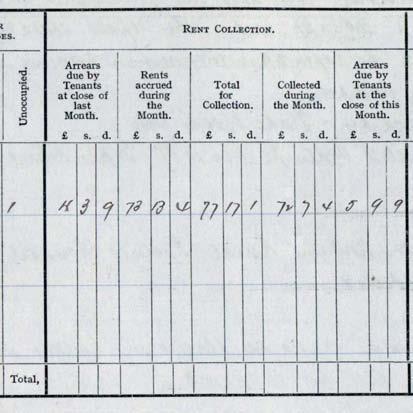 R
ES.
RENT COLLECTION.
Unoccupied.
Arrears due by Tenants at close of last Month.
Rents accrued during the Month.
Total for Collection.
Collected during the Month.
Arrears due by Tenants at the close of this Month.
£ s. d. £ s. d. £ s. d. £ s. d. £ s. d.
1 4 3 9 73 13 4 77 17 1 72 7 4 5 9 9
Total,